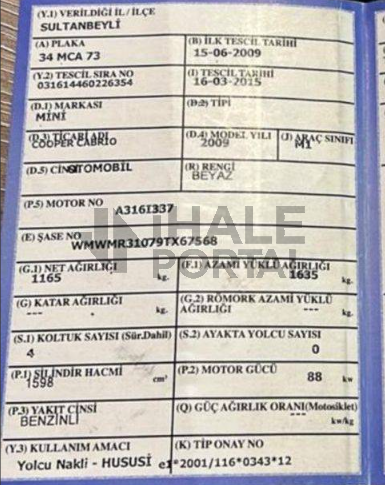 (Y.1) VERİLDİĞİ İL / İLÇE
SULTANBEYLİ
(A) PLAKA (B) İLK TESCİL TARİHİ
34 MCA 73 15-06-2009
(Y.2) TESCİL SIRA NO (I) TESCİL TARİHİ
031614460226354 16-03-2015
(D.1) MARKASI (D.2) TİPİ
MİNİ
(D.3) TİCARİ ADI (D.4) MODEL YILI (J) ARAÇ SINIFI
COOPER CABRIO 2009 M1
(D.5) CİNSİ OTOMOBİL (R) RENGİ
BEYAZ
(P.5) MOTOR NO A316I337
(E) ŞASE NO WMWMR31079TX67568
(G.1) NET AĞIRLIĞI (F.1) AZAMİ YÜKLÜ AĞIRLIĞI
1165 kg. 1635 kg.
(G) KATAR AĞIRLIĞI (G.2) RÖMORK AZAMİ YÜKLÜ AĞIRLIĞI
--- kg. --- kg.
(S.1) KOLTUK SAYISI (Sür.Dahil) (S.2) AYAKTA YOLCU SAYISI
4 0
(P.1) SİLİNDİR HACMİ (P.2) MOTOR GÜCÜ
1598 cm³ 88 kw
(P.3) YAKIT CİNSİ (Q) GÜÇ AĞIRLIK ORANI(Motosiklet)
BENZİNLİ --- kw/kg
(Y.3) KULLANIM AMACI (K) TİP ONAY NO
Yolcu Nakli - HUSUSİ e1*2001/116*0343*12
İHALE
PORTALI